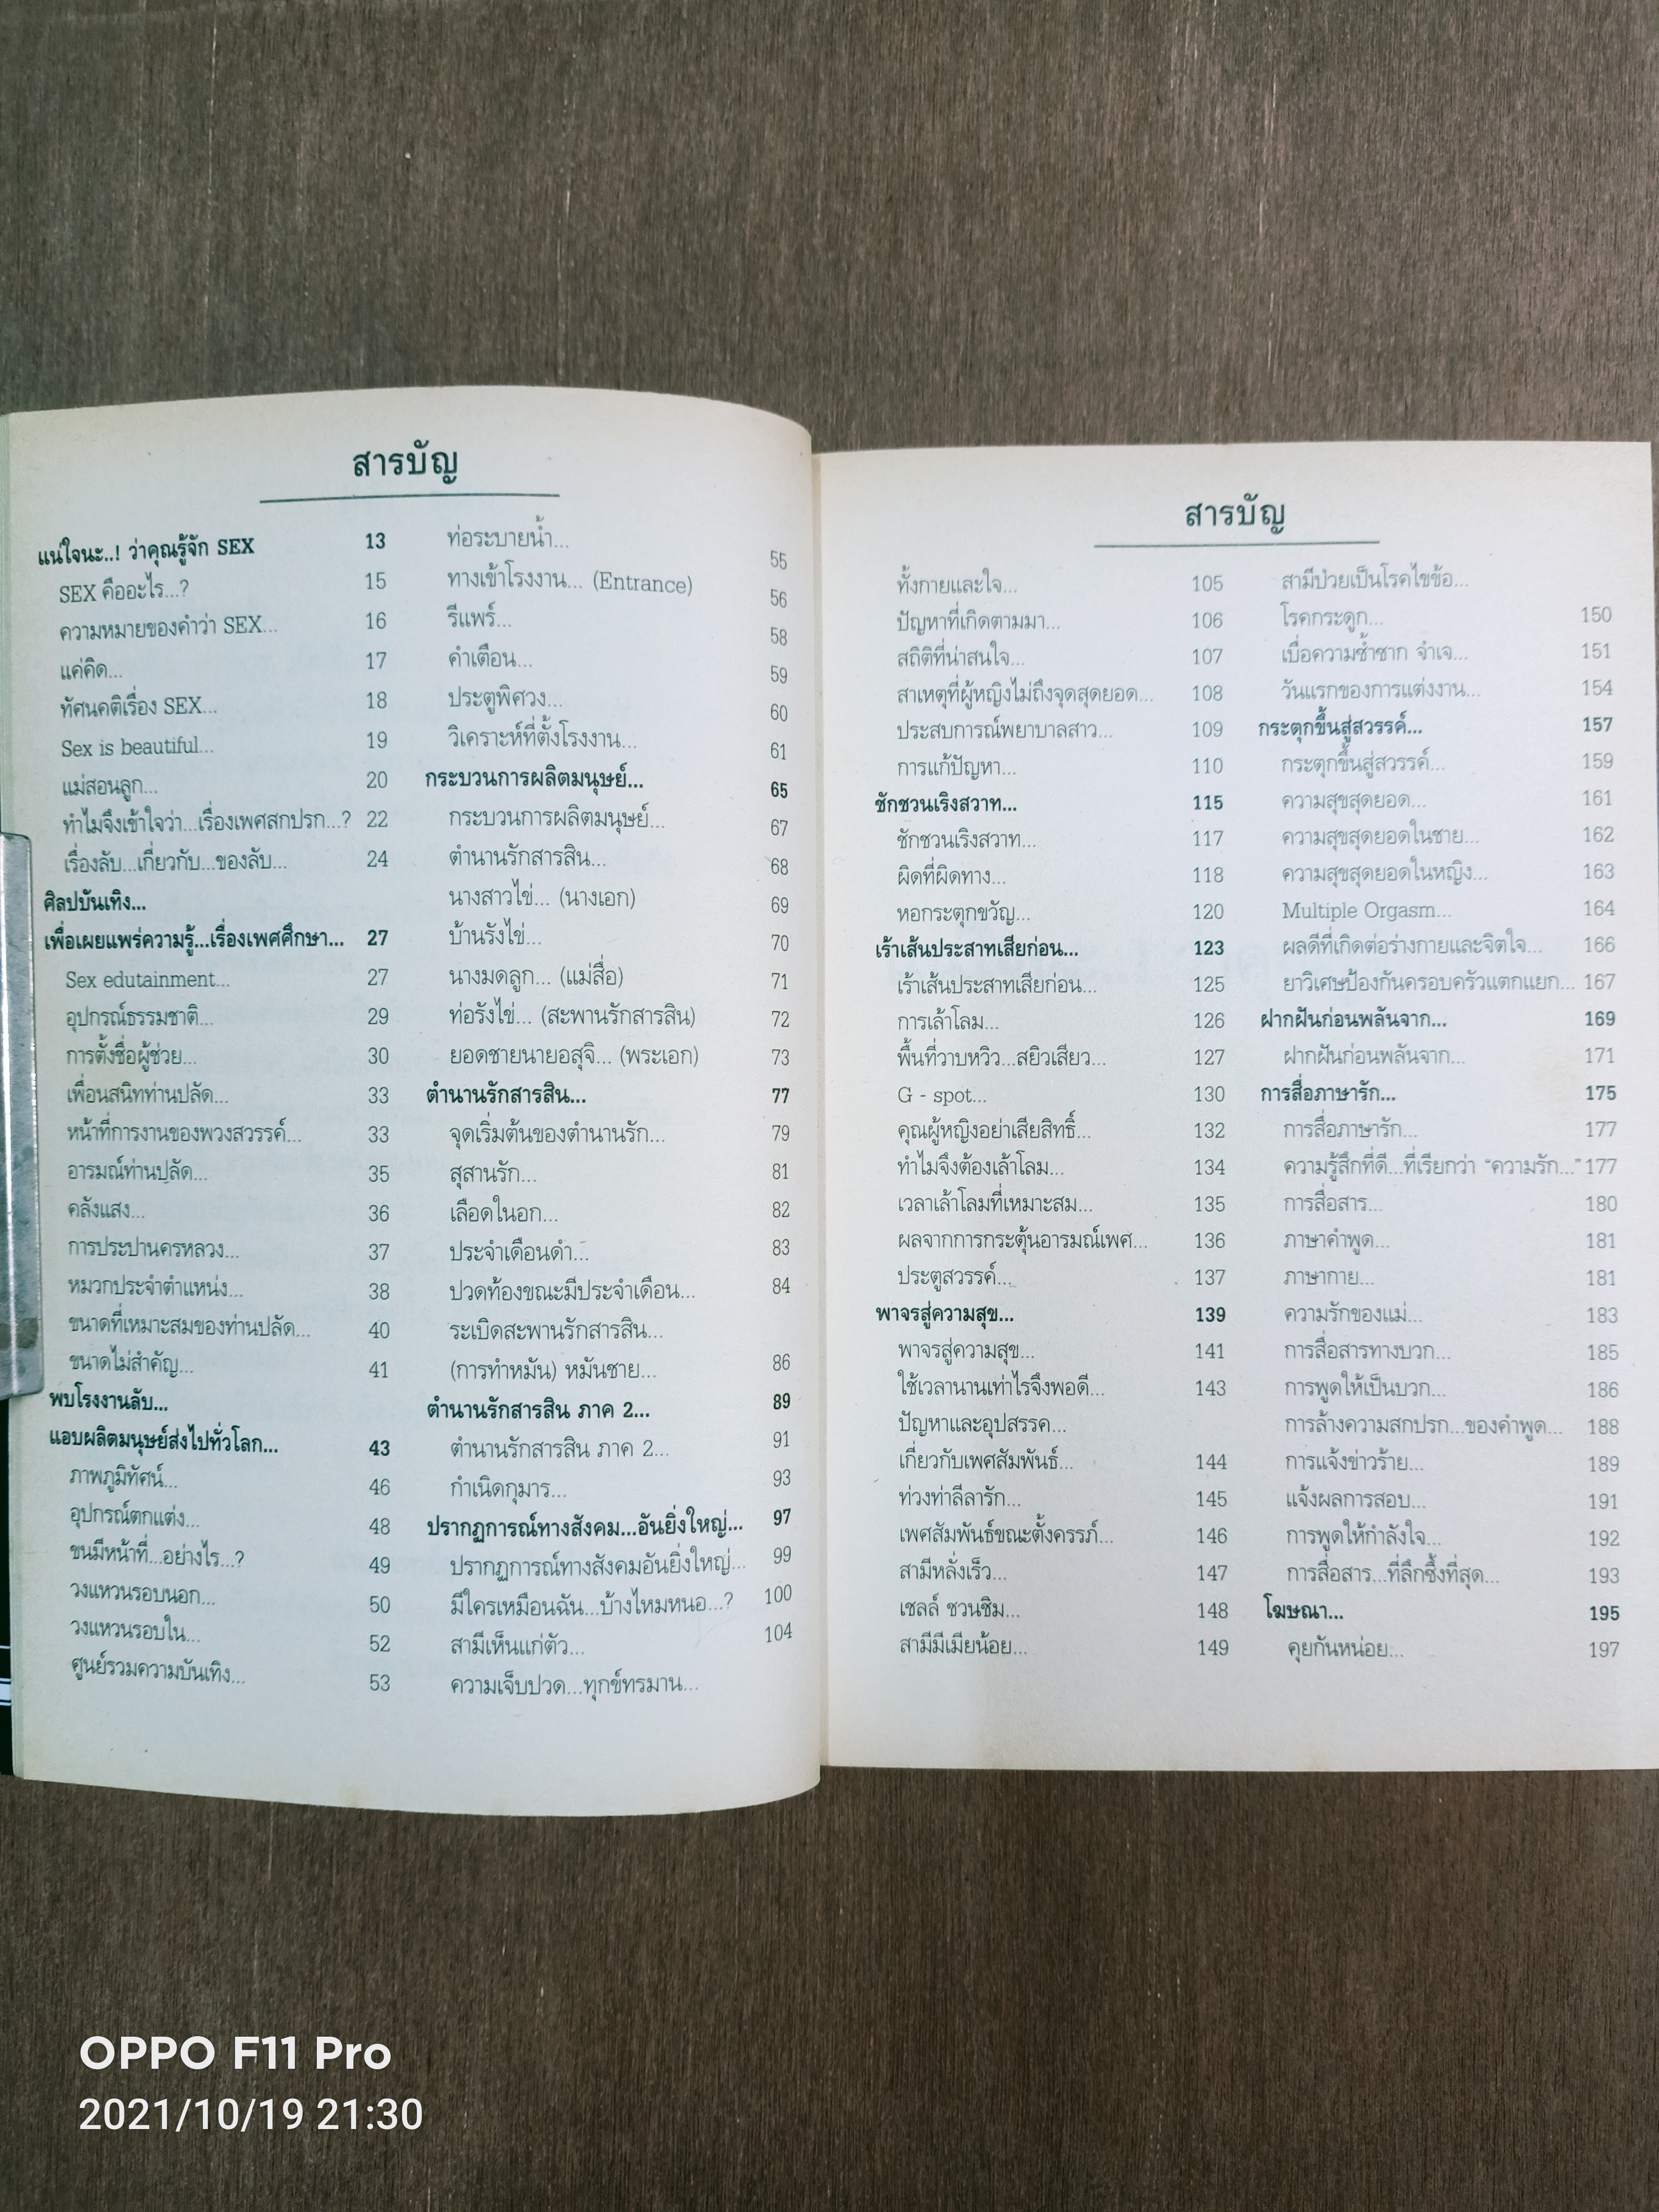 สารบัญ
แน่ใจนะ..! ว่าคุณรู้จัก SEX 13
SEX คืออะไร...? 15
ความหมายของคำว่า SEX... 16
แค่คิด... 17
ทัศนคติเรื่อง SEX... 18
Sex is beautiful... 19
แม่สอนลูก... 20
ทำไมจึงเข้าใจว่า...เรื่องเพศสกปรก...? 22
เรื่องลับ...เกี่ยวกับ...ของลับ... 24
ศิลปบันเทิง...
เพื่อเผยแพร่ความรู้...เรื่องเพศศึกษา... 27
Sex edutainment... 27
อุปกรณ์ธรรมชาติ... 29
การตั้งชื่อผู้ช่วย... 30
เพื่อนสนิทท่านปลัด... 33
หน้าที่การงานของพวงสวรรค์... 33
อารมณ์ท่านปลัด... 35
คลังแสง... 36
การประปานครหลวง... 37
หมวกประจำตำแหน่ง... 38
ขนาดที่เหมาะสมของท่านปลัด... 40
ขนาดไม่สำคัญ... 41
พบโรงงานลับ...
แอบผลิตมนุษย์ส่งไปทั่วโลก... 43
ภาพภูมิทัศน์... 46
อุปกรณ์ตกแต่ง... 48
ขนมีหน้าที่...อย่างไร...? 49
วงแหวนรอบนอก... 50
วงแหวนรอบใน... 52
ศูนย์รวมความบันเทิง... 53
ท่อระบายน้ำ... 55
ทางเข้าโรงงาน... (Entrance) 56
รีแพร์... 58
คำเตือน... 59
ประตูพิศวง... 60
วิเคราะห์ที่ตั้งโรงงาน... 61
กระบวนการผลิตมนุษย์... 65
กระบวนการผลิตมนุษย์... 67
ตำนานรักสารสิน... 68
นางสาวไข่... (นางเอก) 69
บ้านรังไข่... 70
นางมดลูก... (แม่สื่อ) 71
ท่อรังไข่... (สะพานรักสารสิน) 72
ยอดชายนายอสุจิ... (พระเอก) 73
ตำนานรักสารสิน... 77
จุดเริ่มต้นของตำนานรัก... 79
สุสานรัก... 81
เลือดในอก... 82
ประจำเดือนดำ... 83
ปวดท้องขณะมีประจำเดือน... 84
ระเบิดสะพานรักสารสิน...
(การทำหมัน) หมันชาย... 86
ตำนานรักสารสิน ภาค 2... 89
ตำนานรักสารสิน ภาค 2... 91
กำเนิดกุมาร... 93
ปรากฏการณ์ทางสังคม...อันยิ่งใหญ่... 97
ปรากฏการณ์ทางสังคมอันยิ่งใหญ่... 99
มีใครเหมือนฉัน...บ้างไหมหนอ...? 100
สามีเห็นแก่ตัว... 104
ความเจ็บปวด...ทุกข์ทรมาน...
สารบัญ
ทั้งกายและใจ... 105
ปัญหาที่เกิดตามมา... 106
สถิติที่น่าสนใจ... 107
สาเหตุที่ผู้หญิงไม่ถึงจุดสุดยอด... 108
ประสบการณ์พยาบาลสาว... 109
การแก้ปัญหา... 110
ชักชวนเริงสวาท... 115
ชักชวนเริงสวาท... 117
ผิดที่ผิดทาง... 118
หอกระตุกขวัญ... 120
เร้าเส้นประสาทเสียก่อน... 123
เร้าเส้นประสาทเสียก่อน... 125
การเล้าโลม... 126
พื้นที่วาบหวิว...สยิวเสียว... 127
G - spot... 130
คุณผู้หญิงอย่าเสียสิทธิ์... 132
ทำไมจึงต้องเล้าโลม... 134
เวลาเล้าโลมที่เหมาะสม... 135
ผลจากการกระตุ้นอารมณ์เพศ... 136
ประตูสวรรค์... 137
พาจรสู่ความสุข... 139
พาจรสู่ความสุข... 141
ใช้เวลานานเท่าไรจึงพอดี... 143
ปัญหาและอุปสรรค...
เกี่ยวกับเพศสัมพันธ์... 144
ท่วงท่าลีลารัก... 145
เพศสัมพันธ์ขณะตั้งครรภ์... 146
สามีหลั่งเร็ว... 147
เชลล์ ชวนชิม... 148
สามีมีเมียน้อย... 149
สามีป่วยเป็นโรคไขข้อ...
โรคกระดูก... 150
เบื่อความซ้ำซาก จำเจ... 151
วันแรกของการแต่งงาน... 154
กระตุกขึ้นสู่สวรรค์... 157
กระตุกขึ้นสู่สวรรค์... 159
ความสุขสุดยอด... 161
ความสุขสุดยอดในชาย... 162
ความสุขสุดยอดในหญิง... 163
Multiple Orgasm... 164
ผลดีที่เกิดต่อร่างกายและจิตใจ... 166
ยาวิเศษป้องกันครอบครัวแตกแยก... 167
ฝากฝันก่อนพลันจาก... 169
ฝากฝันก่อนพลันจาก... 171
การสื่อภาษารัก... 175
การสื่อภาษารัก... 177
ความรู้สึกที่ดี...ที่เรียกว่า "ความรัก..." 177
การสื่อสาร... 180
ภาษาคำพูด... 181
ภาษากาย... 181
ความรักของแม่... 183
การสื่อสารทางบวก... 185
การพูดให้เป็นบวก... 186
การล้างความสกปรก...ของคำพูด... 188
การแจ้งข่าวร้าย... 189
แจ้งผลการสอบ... 191
การพูดให้กำลังใจ... 192
การสื่อสาร...ที่ลึกซึ้งที่สุด... 193
โฆษณา... 195
คุยกันหน่อย... 197
OPPO F11 Pro
2021/10/19 21:30